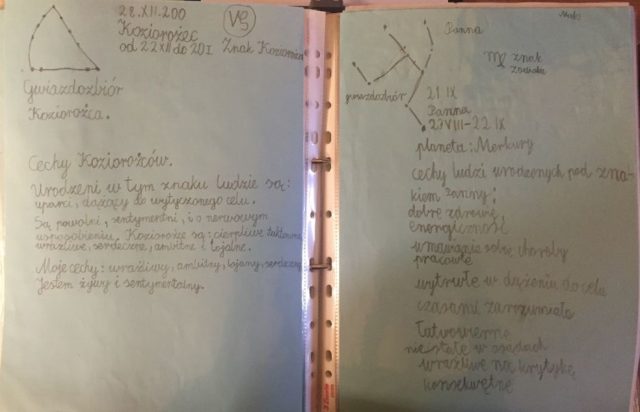 28.XII.200
Koziorożec
od 22 XII do 20 I
Znak Koziorożca
Gwiazdozbiór
Koziorożca.
Cechy Koziorożców.
Urodzeni w tym znaku ludzie są:
uparci, dążący do wytyczonego celu.
Są powolni, sentymentni, i o nerwowym
usposobieniu. Koziorożce są: cierpliwe taktowne
wrażliwe, serdeczne, ambitne i lojalne.
Moje cechy: wrażliwy, ambitny, lojany, serdeczny
Jestem żywy i sentymentalny.
Panna
♍ znak
zodiaku
gwiazdozbiór
21 IX
Panna
23 VIII - 22 IX
planeta: Merkury
cechy ludzi urodzonych pod zna-
kiem panny:
dobre zdrowie,
energiczność
wmawianie sobie choroby
pracowite
wytrwałe w dążeniu do celu
czasami zarozumiałe
łatwowierne
nie stałe w osądach
wrażliwe na krytykę
konsekwętne